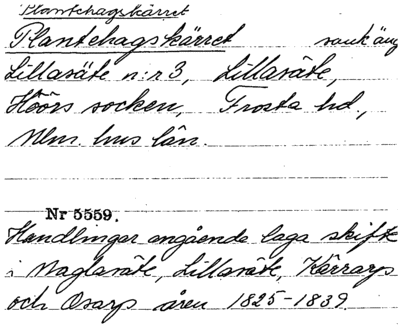 Plantehagskärret
Plantehagskärret sank äng
Lillasäte n:r 3, Lillasäte,
Höörs socken, Frosta hd.,
Mlm. hus län.
Nr 5559.
Handlingar angående laga skifte
i Maglasäte, Lillasäte, Kärrarp
och Osarp åren 1825-1839.